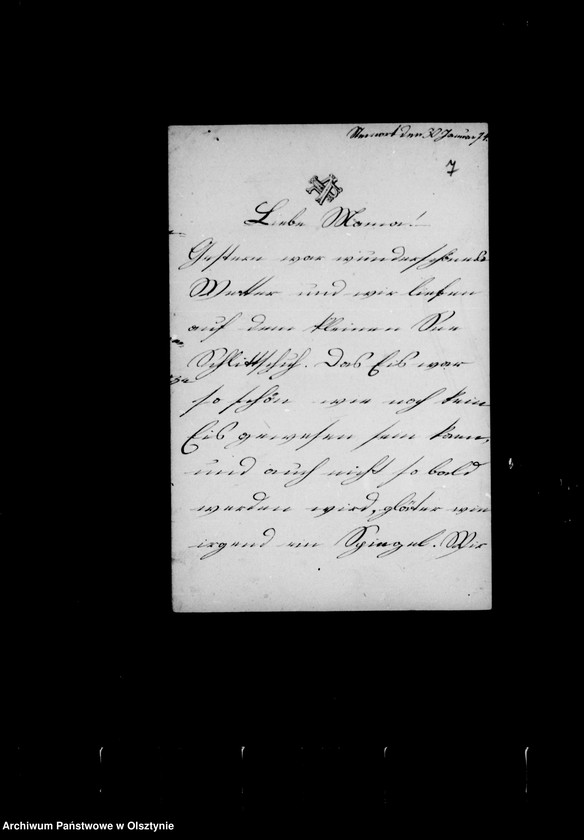 Steinort den 30 Januar 74.
7
Liebe Mama!
Gestern war wunderschönes
Wetter und wir liefen
auf dem kleinen See
Schlittschuh. Das Eis war
so schön wie noch kein
Eis gewesen sein kann,
und auch nicht so bald
werden wird, glatter wie
irgend ein Spiegel. Wir
Archiwum Państwowe w Olsztynie